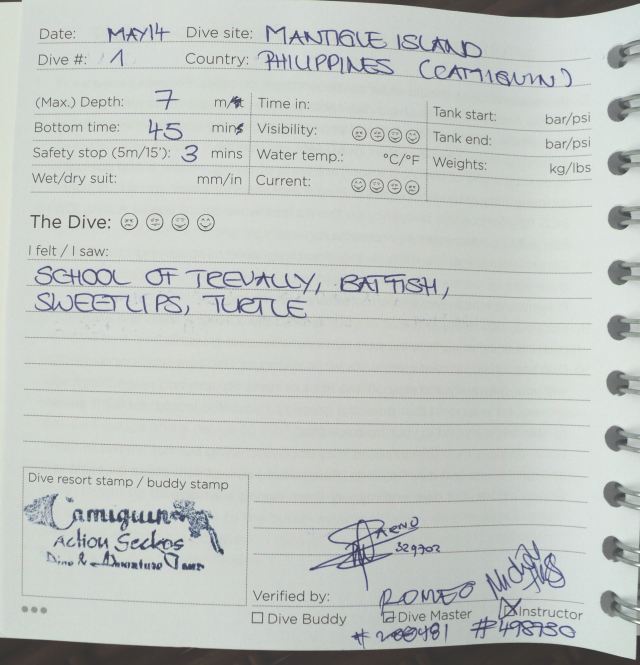 Date: MAY14 Dive site: MANTIGUE ISLAND
Dive #: 1 Country: PHILIPPINES (CAMIGUIN)
(Max.) Depth: 7 m/ft Time in: Tank start: bar/psi
Bottom time: 45 mins Visibility: Tank end: bar/psi
Safety stop (5m/15'): 3 mins Water temp.: °C/°F Weights: kg/lbs
Wet/dry suit: mm/in Current:
The Dive:
I felt / I saw:
SCHOOL OF TREVALLY, BATFISH,
SWEETLIPS, TURTLE
Dive resort stamp / buddy stamp
Camiguin
Action Geckos
Dive & Adventure Tours
RENO
329702
Verified by: ROMEO
Dive Buddy Dive Master Instructor
#200481 #498730